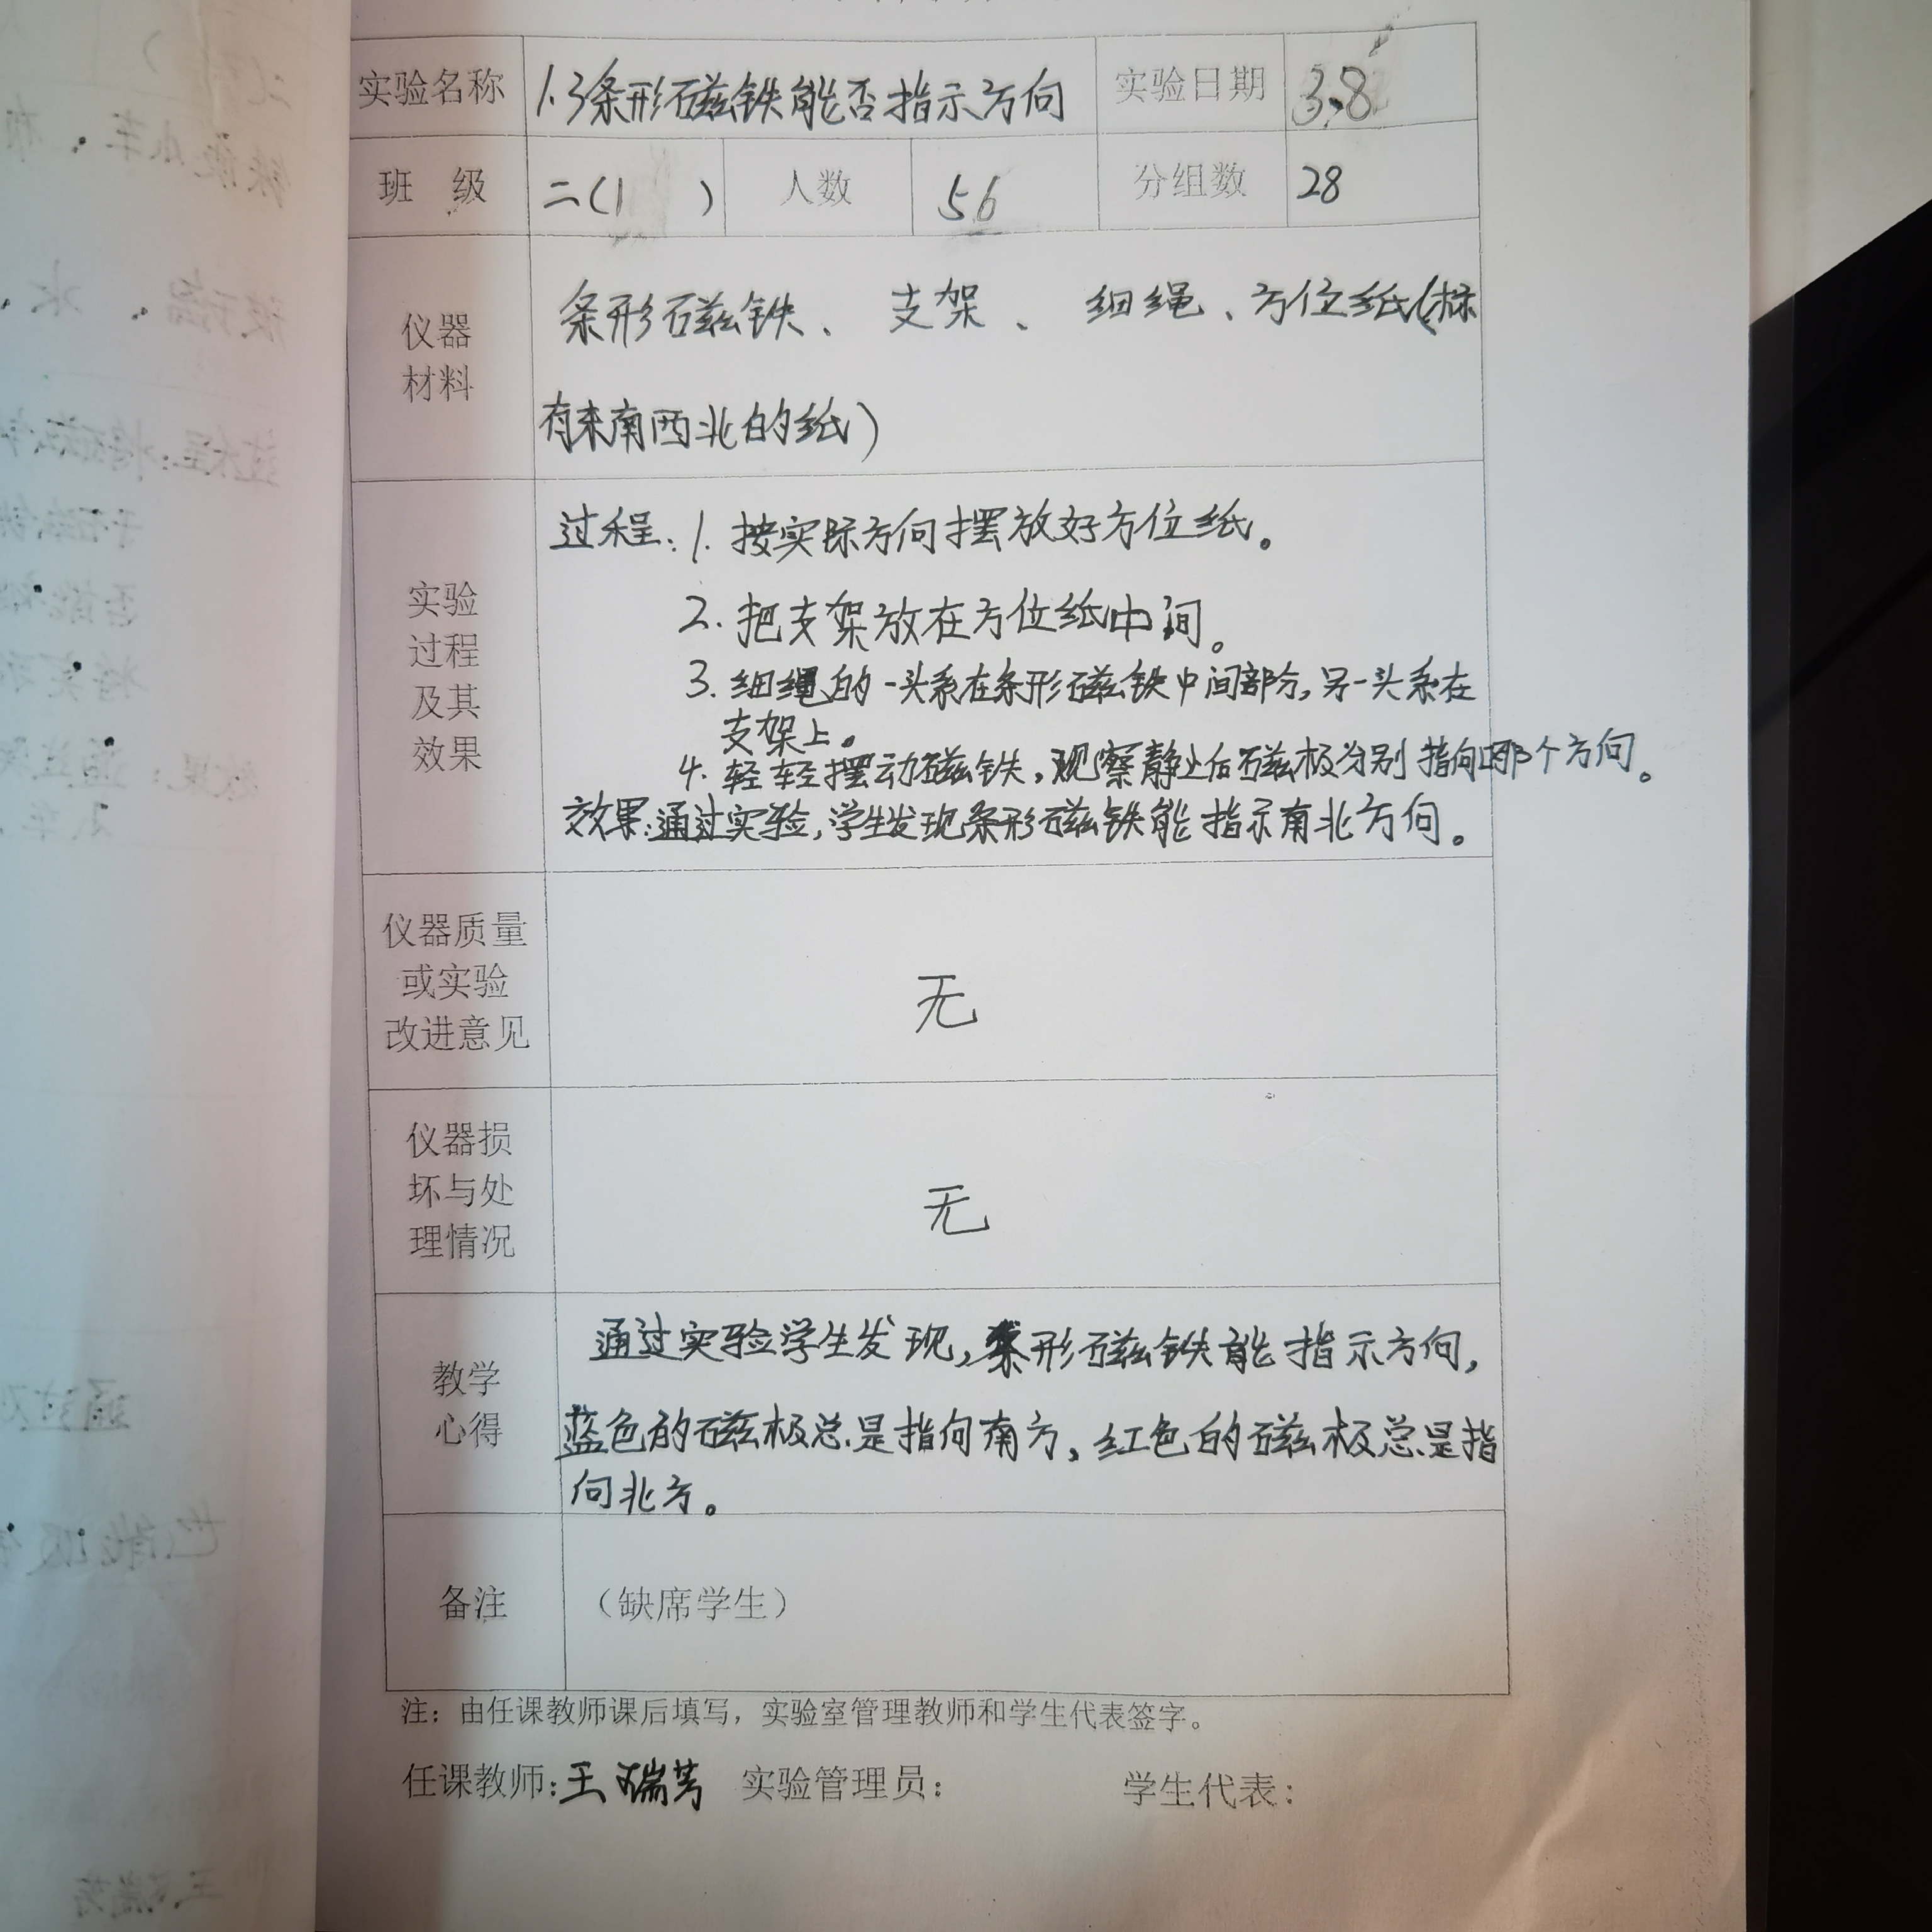 实验名称 1.3条形磁铁能否指示方向 实验日期 3.8
班 级 二(1 ) 人数 56 分组数 28
条形磁铁、支架、细绳、方位纸(标
仪器
材料
有东南西北的纸)
过程:1.按实际方向摆放好方位纸。
2.把支架放在方位纸中间。
实验
过程
及其
效果
3.细绳的一头系在条形磁铁中间部分,另一头系在
支架上。
4.轻轻摆动磁铁,观察静止后磁极分别指向哪个方向。
效果:通过实验,学生发现条形磁铁能指示南北方向。
仪器质量
或实验
改进意见
无
仪器损
坏与处
理情况
无
教学
心得
通过实验学生发现,条形磁铁能指示方向,
蓝色的磁极总是指向南方,红色的磁极总是指
向北方。
备注 (缺席学生)
注:由任课教师课后填写,实验室管理教师和学生代表签字。
任课教师:王瑞芳 实验管理员: 学生代表: